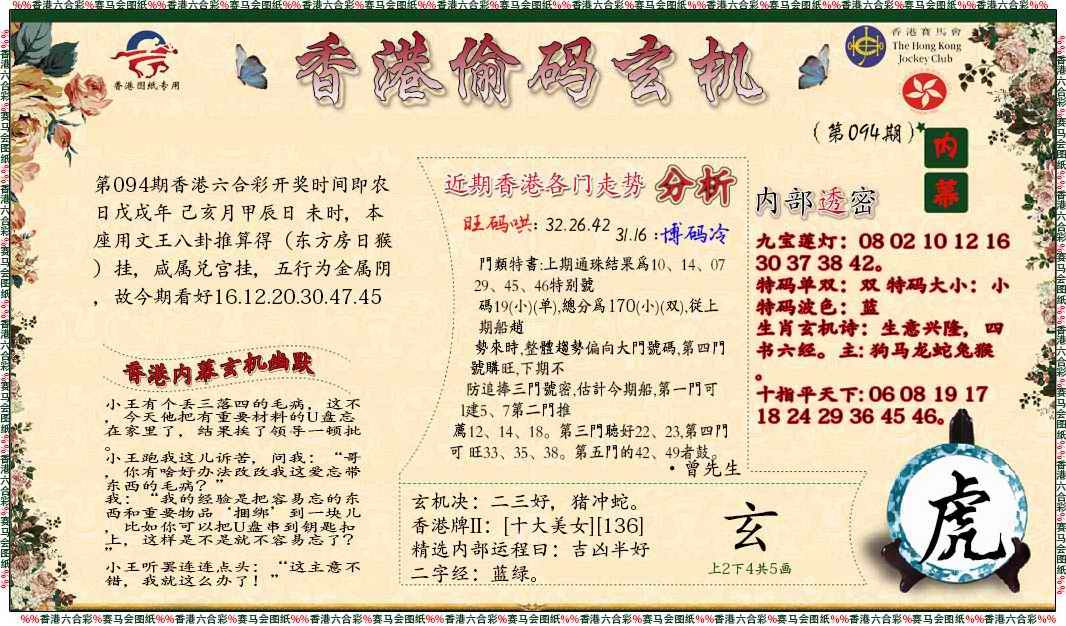 %%香港六合彩%赛马会图纸%%香港六合彩%赛马会图纸%%香港六合彩%赛马会图纸%%香港六合彩%赛马会图纸%%香港六合彩%赛马会图纸%%香港六合彩%赛马会图纸%%香港六合彩%%
香港图纸专用
香港偷码玄机
香港賽馬會
The Hong Kong
Jockey Club
(第094期)
内幕
第094期香港六合彩开奖时间即农
日戊戌年 己亥月甲辰日 未时，本
座用文王八卦推算得（东方房日猴
）挂，咸属兑宫挂，五行为金属阴
，故今期看好16.12.20.30.47.45
香港内幕玄机幽默
小王有个丢三落四的毛病，这不
，今天他把有重要材料的U盘忘
在家里了，结果挨了领导一顿批
。
小王跑我这儿诉苦，问我：“哥
，你有啥好办法改改我这爱忘带
东西的毛病？”
我：“我的经验是把容易忘的东
西和重要物品‘捆绑’到一块儿
，比如你可以把U盘串到钥匙扣
上，这样是不是就不容易忘了？
”
小王听罢连连点头：“这主意不
错，我就这么办了！”
近期香港各门走势 分析
旺码哄: 32.26.42
31.16 :博码冷
門類特書:上期通珠結果爲10、14、07
29、45、46特别號
碼19(小)(单),總分爲170(小)(双),従上
期船趙
勢來時,整體趨勢偏向大門號碼,第四門
號購旺,下期不
防追捧三門號密,估計今期船,第一門可
1建5、7第二門推
薦12、14、18。第三門聴好22、23,第四門
可 旺33、35、38。第五門的42、49者鼓。
·曾先生
内部透密
九宝莲灯：08 02 10 12 16
30 37 38 42。
特码单双：双 特码大小：小
特码波色：蓝
生肖玄机诗：生意兴隆，四
书六经。主: 狗马龙蛇兔猴
。
十指平天下: 06 08 19 17
18 24 29 36 45 46。
玄机决：二三好，猪冲蛇。
香港牌II：[十大美女][136]
精选内部运程曰：吉凶半好
二字经：蓝绿。
玄
上2下4共5画
虎
%%香港六合彩%赛马会图纸%%香港六合彩%赛马会图纸%%香港六合彩%赛马会图纸%%香港六合彩%赛马会图纸%%香港六合彩%赛马会图纸%%香港六合彩%赛马会图纸%%香港六合彩%%